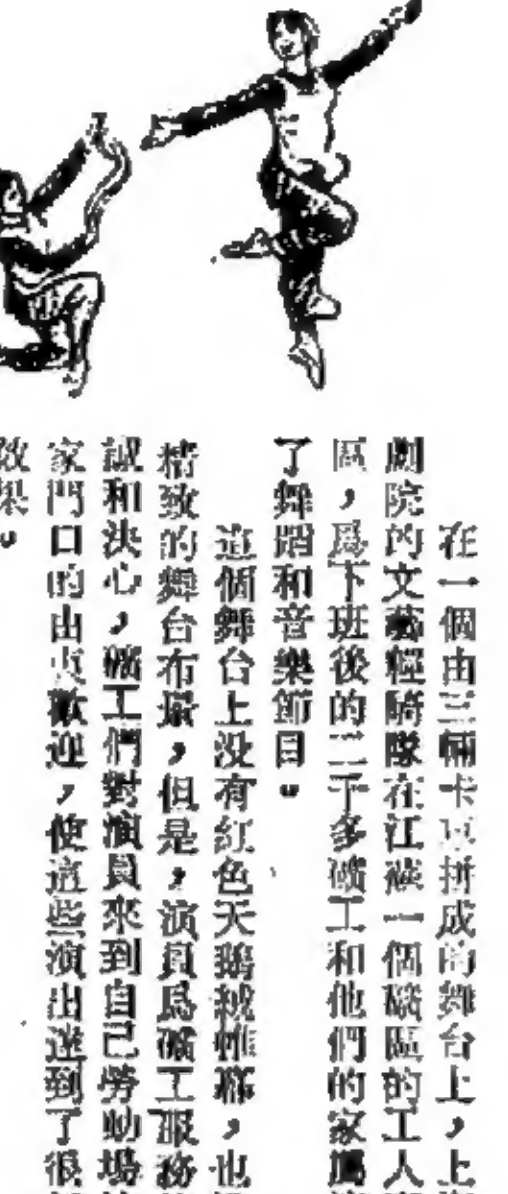 在一個由三輛卡車拼成的舞台上，上
劇院的文藝輕騎隊在江蘇一個礦區的工人
區，爲下班後的二千多礦工和他們的家屬
了舞蹈和音樂節目。
這個舞台上没有紅色天鵝絨帷幕，也
精致的舞台布景，但是，演員爲礦工服務
誠和決心，礦工們對演員來到自己勞動場
家門口的由衷歡迎，使這些演出達到了很
效果。